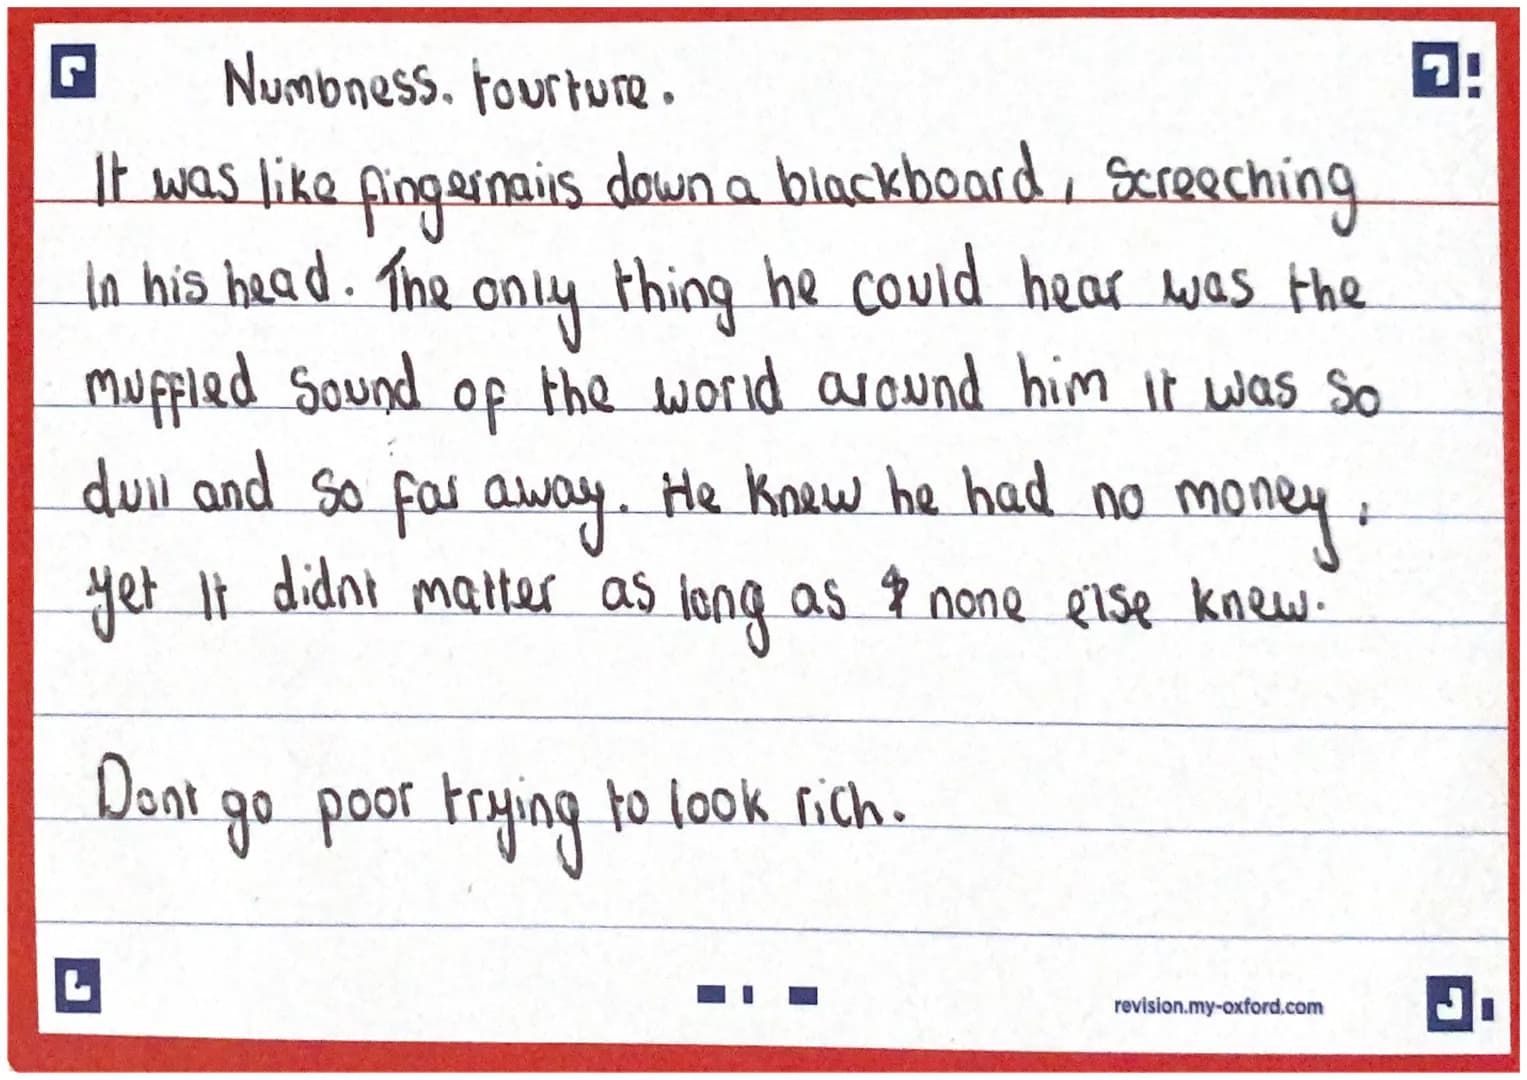 Numbness. tourture.
It was like fingernails down a blackboard, screeching
in his head. The only thing he could hear was the
muffled sound of the world around him it was so
dull and so far away. He knew he had no money,
yet it didnt matter as long as none else knew.
Dont go poor trying to look rich.
revision.my-oxford.com